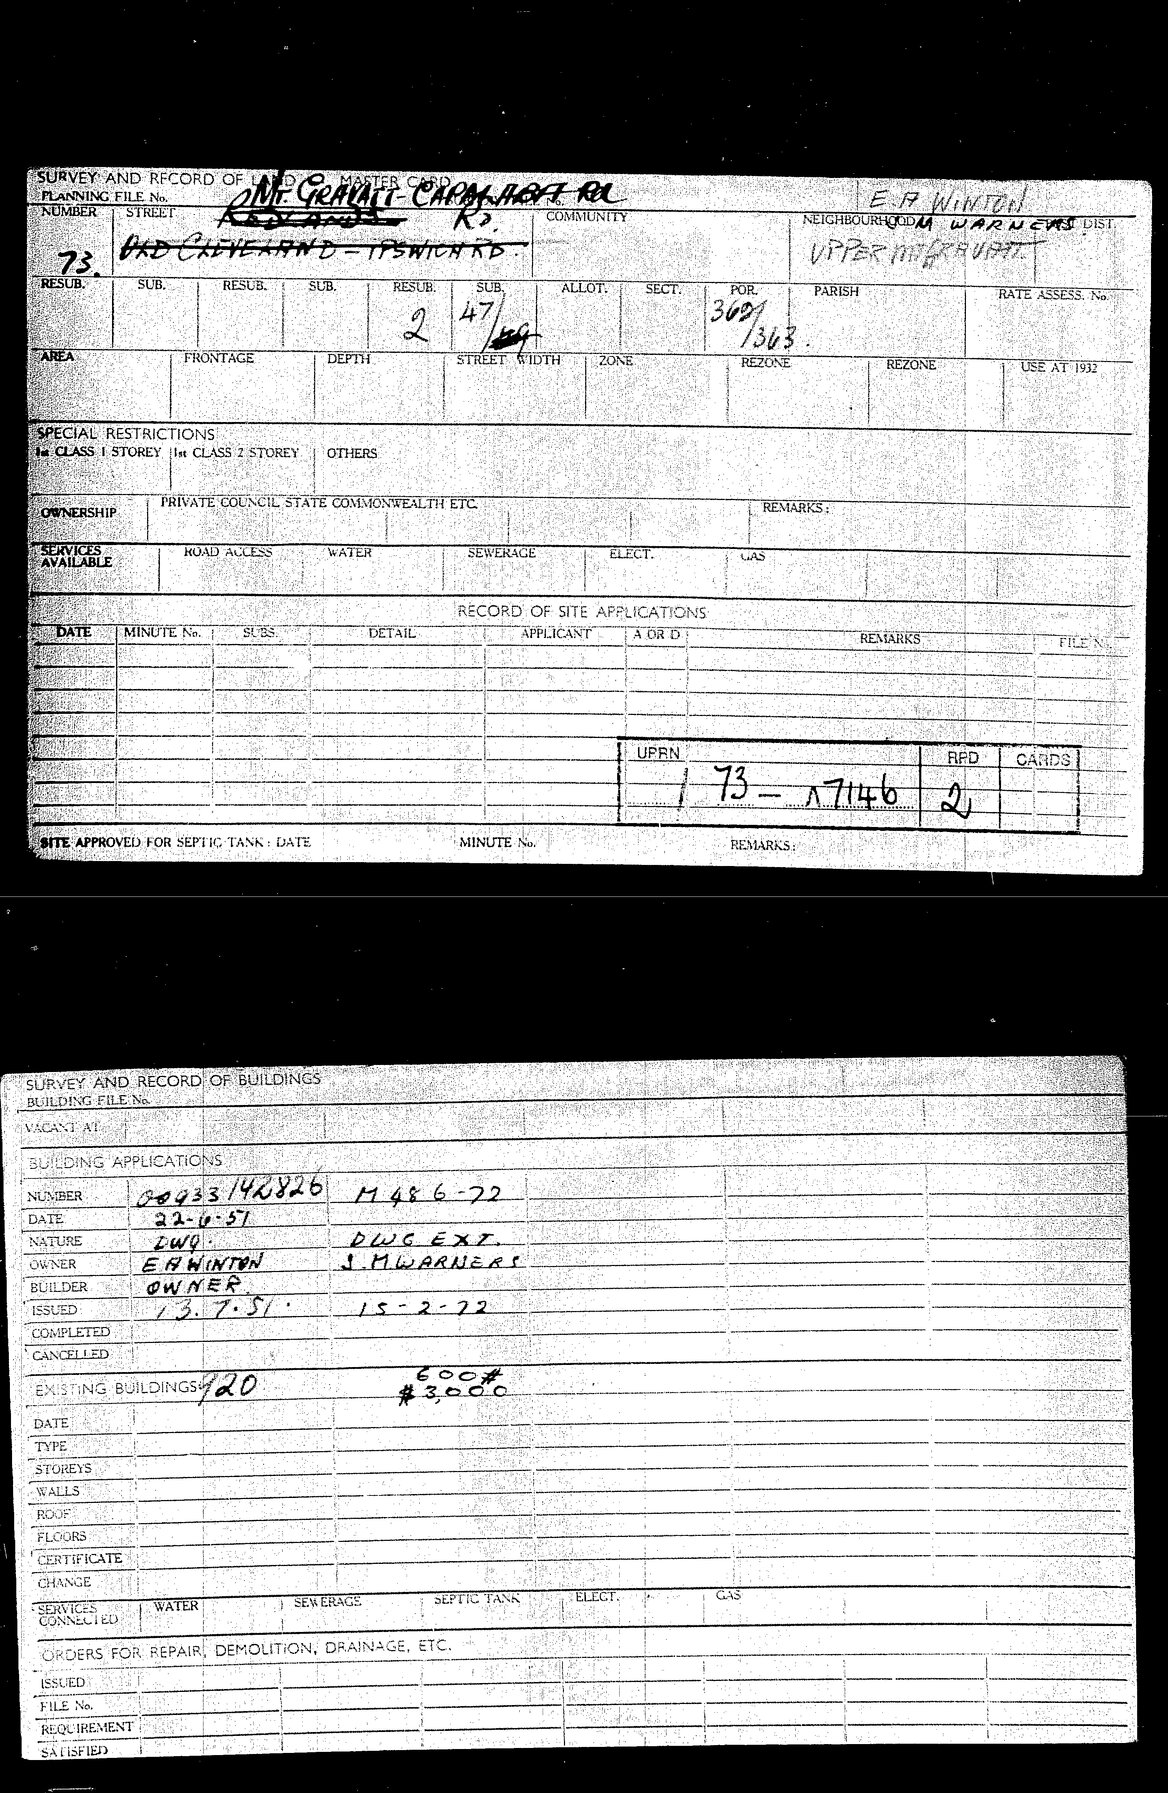 SURVEY AND RECORD OF LAND MASTER CARD
PLANNING FILE No.
MT. GRAVATT-CAPALABA Rd
E. A WINTON
NUMBER STREET COMMUNITY NEIGHBOURHOOD DIST.
REDLANDS Rd.
J M WARNERS
73. OLD CLEVELAND - IPSWICH RD.
UPPER MT GRAVATT
RESUB. SUB. RESUB. SUB. RESUB. SUB. ALLOT. SECT. POR. PARISH RATE ASSESS. No.
2 47/ 362/
/363.
AREA FRONTAGE DEPTH STREET WIDTH ZONE REZONE REZONE USE AT 1932
SPECIAL RESTRICTIONS
1st CLASS 1 STOREY 1st CLASS 2 STOREY OTHERS
OWNERSHIP PRIVATE COUNCIL STATE COMMONWEALTH ETC REMARKS:
SERVICES AVAILABLE ROAD ACCESS WATER SEWERAGE ELECT. GAS
RECORD OF SITE APPLICATIONS
DATE MINUTE No. SUBS. DETAIL APPLICANT A OR D REMARKS FILE No.
UPRN RPD CARDS
73 - 7146 2
SITE APPROVED FOR SEPTIC TANK: DATE MINUTE No. REMARKS:
SURVEY AND RECORD OF BUILDINGS
BUILDING FILE No.
VACANT AT
BUILDING APPLICATIONS
NUMBER 00933/42826 M 486-72
DATE 22-6-51
NATURE DWG. DWG EXT.
OWNER E A WINTON J. M WARNERS
BUILDER OWNER
ISSUED 13.7.51. 15-2-72
COMPLETED
CANCELLED
EXISTING BUILDINGS 920 600#
$3,000
DATE
TYPE
STOREYS
WALLS
ROOF
FLOORS
CERTIFICATE
CHANGE
SERVICES CONNECTED WATER SEWERAGE SEPTIC TANK ELECT. GAS
ORDERS FOR REPAIR, DEMOLITION, DRAINAGE, ETC.
ISSUED
FILE No.
REQUIREMENT
SATISFIED